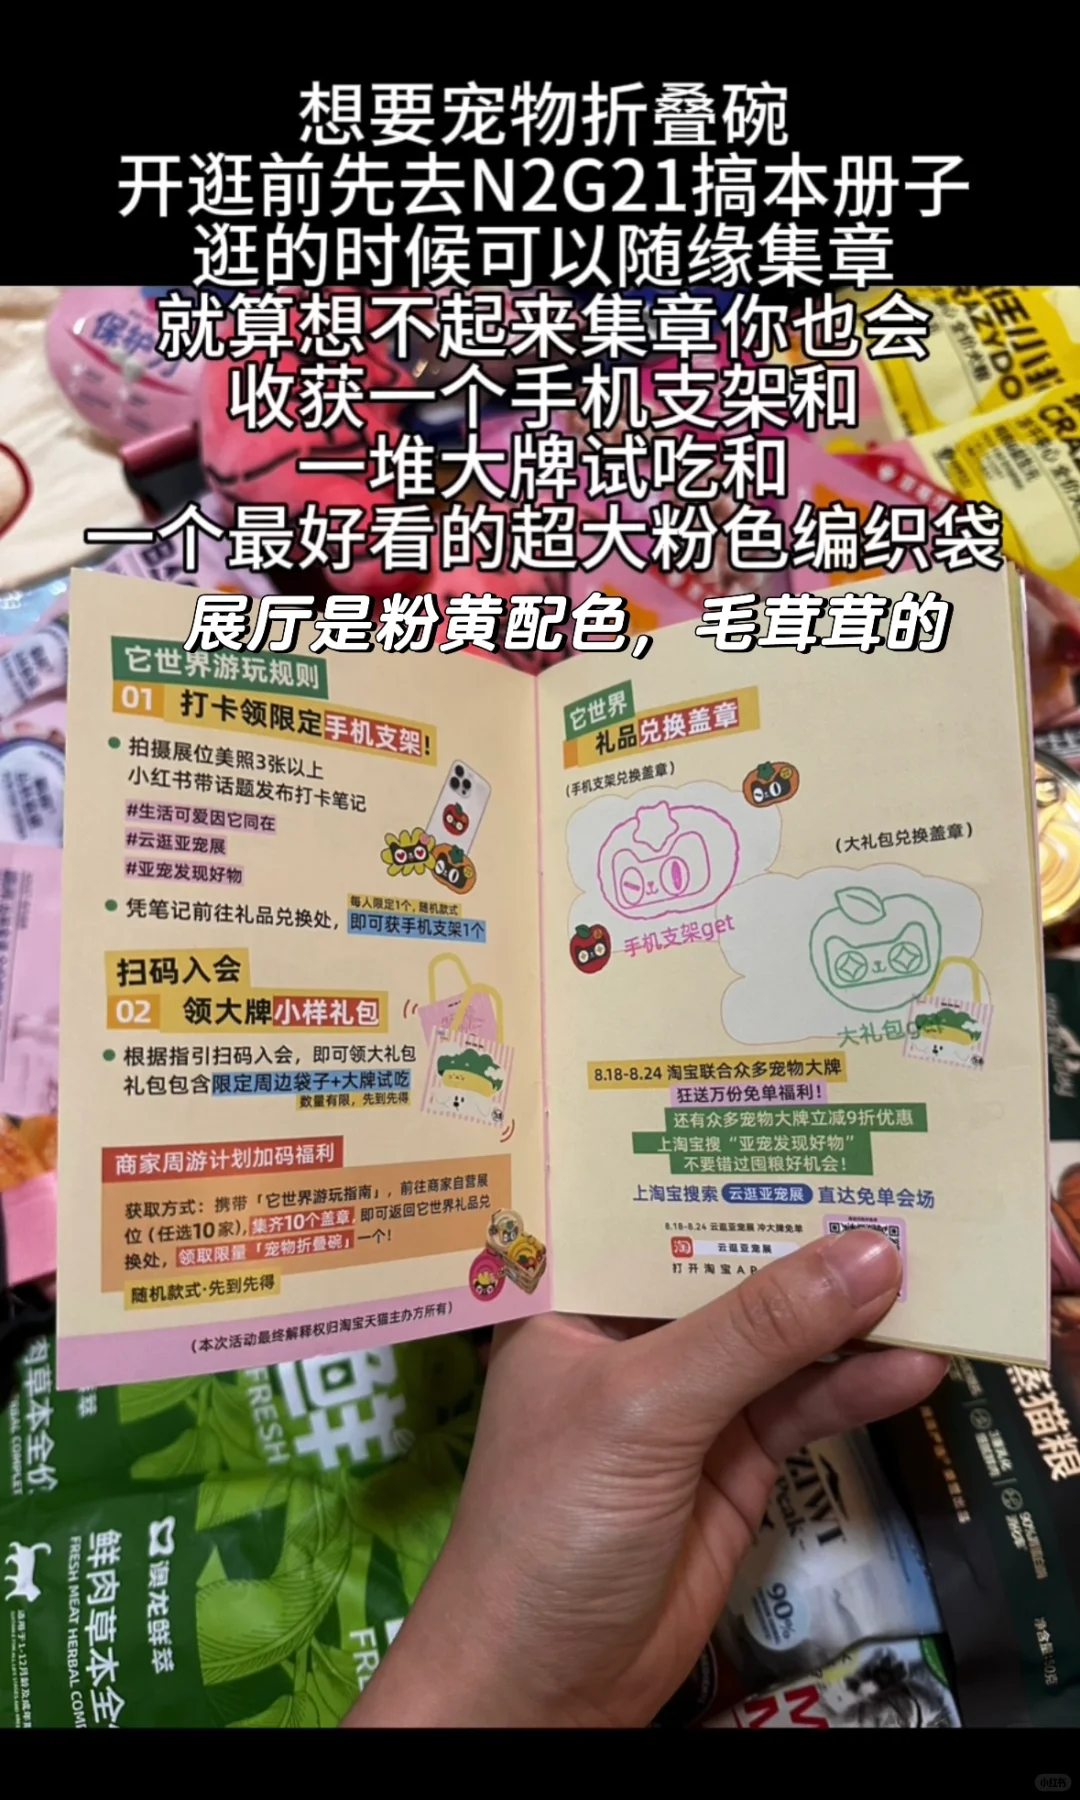 想要宠物折叠碗
开逛前先去N2G21搞本册子
逛的时候可以随缘集章
就算想不起来集章你也会
收获一个手机支架和
一堆大牌试吃和
一个最好看的超大粉色编织袋
展厅是粉黄配色，毛茸茸的
它世界游玩规则
01 打卡领限定手机支架!
拍摄展位美照3张以上
小红书带话题发布打卡笔记
#生活可爱因它同在
#云逛亚宠展
#亚宠发现好物
每人限定1个，随机款式
凭笔记前往礼品兑换处，即可获手机支架1个
扫码入会
02 领大牌小样礼包
根据指引扫码入会，即可领大礼包
礼包包含限定周边袋子+大牌试吃
数量有限，先到先得
商家周游计划加码福利
获取方式：携带「它世界游玩指南」，前往商家自营展
位（任选10家），集齐10个盖章，即可返回它世界礼品兑
换处，领取限量「宠物折叠碗」一个！
随机款式·先到先得
（本次活动最终解释权归淘宝天猫主办方所有）
它世界
礼品兑换盖章
（手机支架兑换盖章）
手机支架get
（大礼包兑换盖章）
大礼包get
8.18-8.24 淘宝联合众多宠物大牌
狂送万份免单福利！
还有众多宠物大牌立减9折优惠
上淘宝搜“亚宠发现好物”
不要错过囤粮好机会！
上淘宝搜索 云逛亚宠展 直达免单会场
8.18-8.24 云逛亚宠展 冲大牌免单
淘 云逛亚宠展
打开淘宝AP
保护力
CRAZYDO
FRESH
肉草本全价
鲜肉草本全
FRESH MEAT HERBAL COMP
澳龙鲜萃
ZIWI
Peak
90%
蒸猫粮
小红书